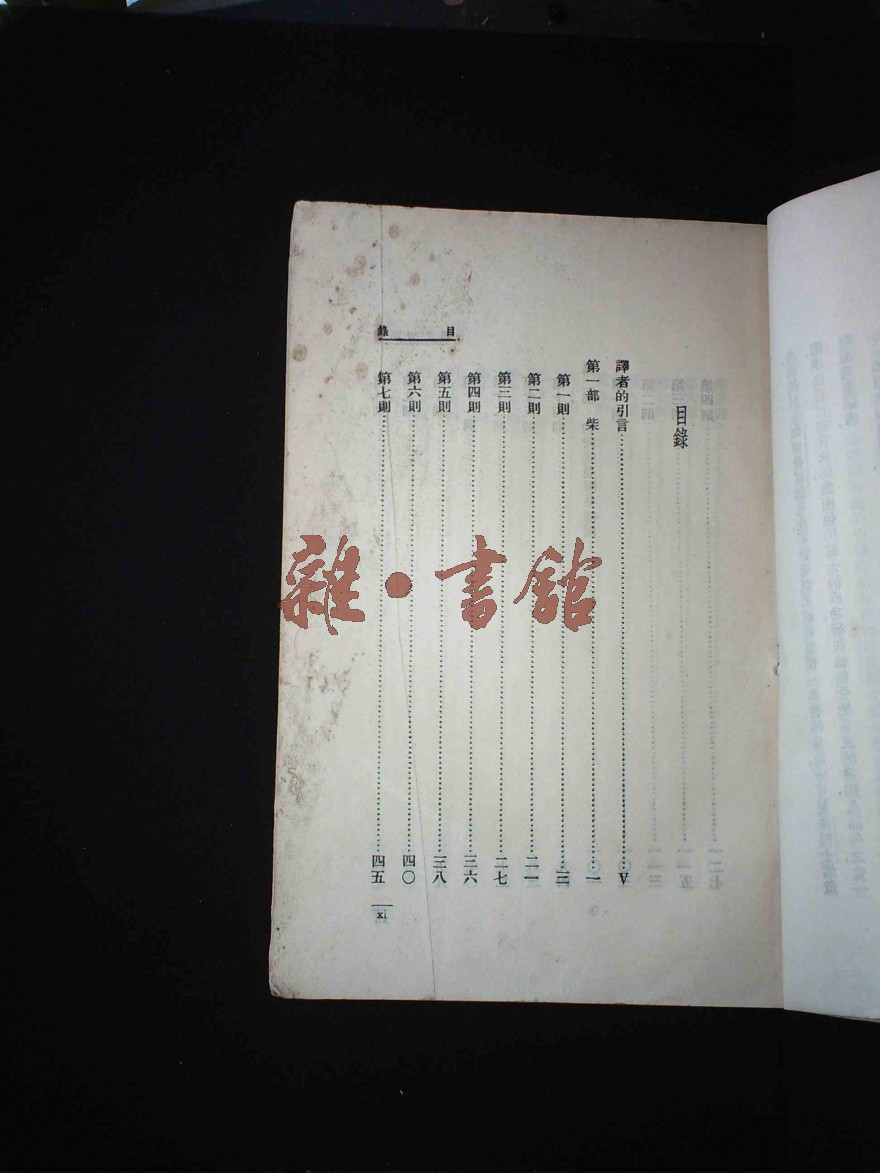 目錄
譯者的引言……V
第一部 柴……一
第一則……三
第二則……二一
第三則……二七
第四則……三六
第五則……三八
第六則……四〇
第七則……四五
目錄
xi
雜·書館